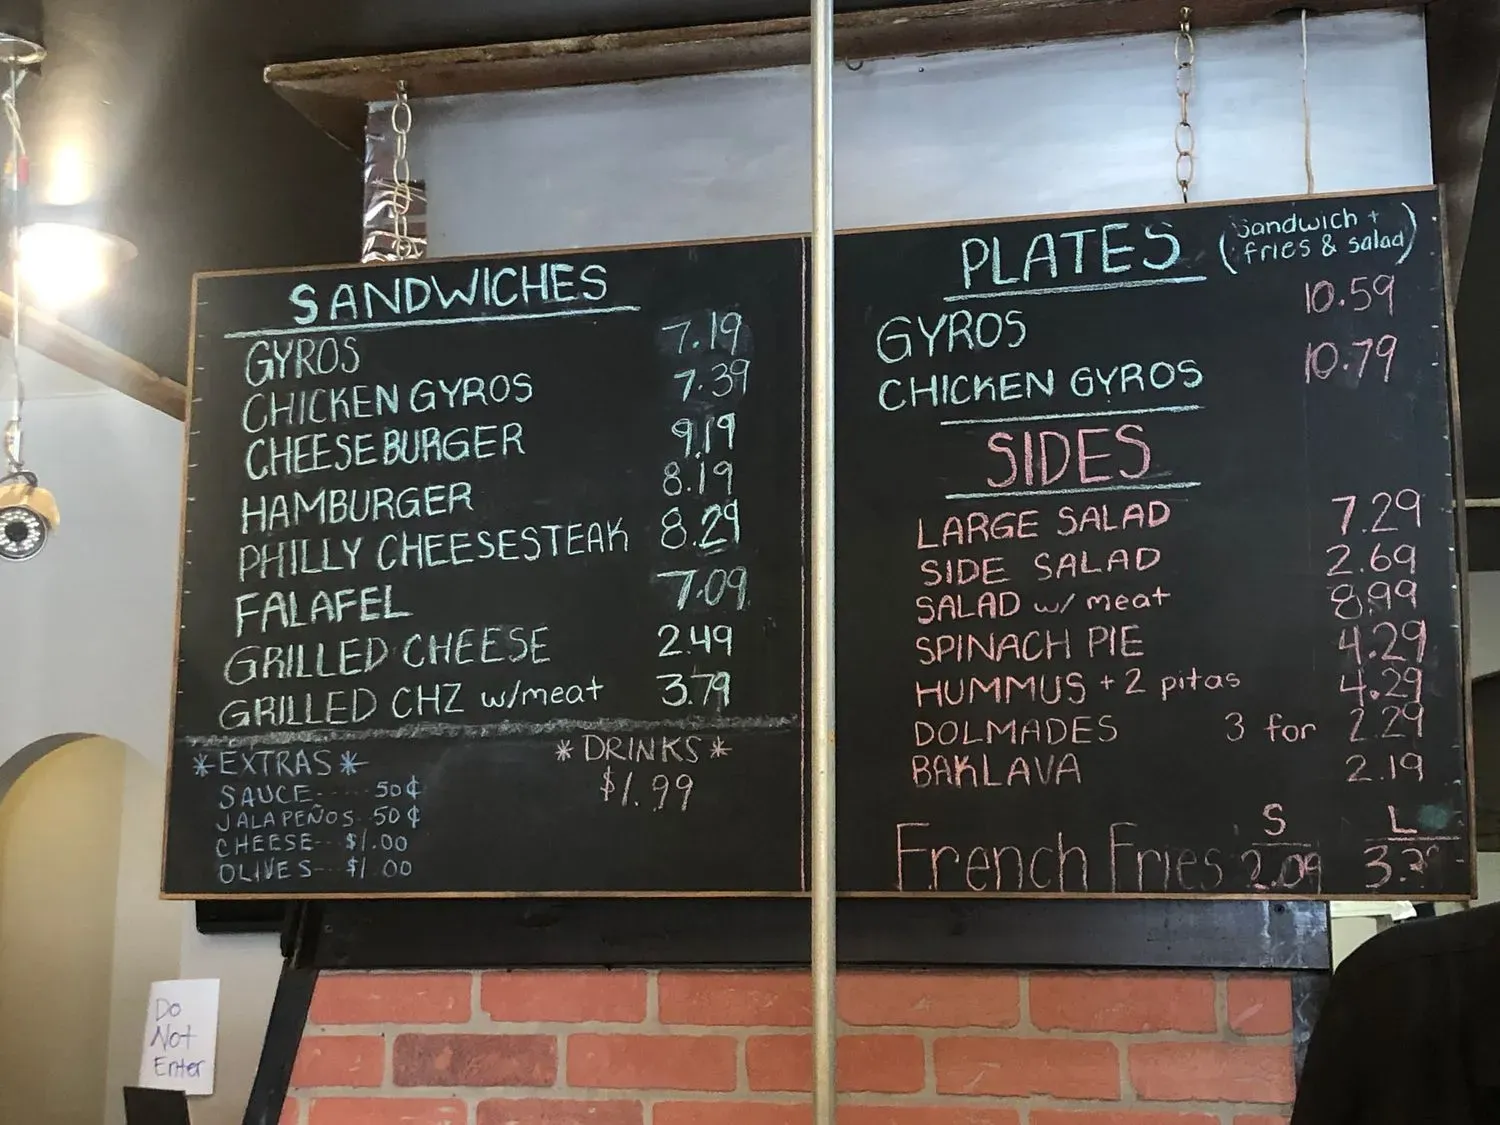 SANDWICHES
GYROS 7.19
CHICKEN GYROS 7.39
CHEESEBURGER 9.19
HAMBURGER 8.19
PHILLY CHEESESTEAK 8.29
FALAFEL 7.09
GRILLED CHEESE 2.49
GRILLED CHZ w/meat 3.79
*EXTRAS*
SAUCE---- 50¢
JALAPEÑOS 50¢
CHEESE-- $1.00
OLIVES--- $1.00
*DRINKS*
$1.99
PLATES (Sandwich +
fries & salad)
GYROS 10.59
CHICKEN GYROS 10.79
SIDES
LARGE SALAD 7.29
SIDE SALAD 2.69
SALAD w/ meat 8.99
SPINACH PIE 4.29
HUMMUS + 2 pitas 4.29
DOLMADES 3 for 2.29
BAKLAVA 2.19
S L
French Fries 2.09
Do
Not
Enter